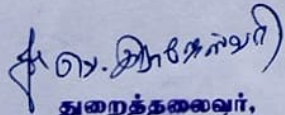 பெ. இராஜேஸ்வரி
துறைத்தலைவர்,